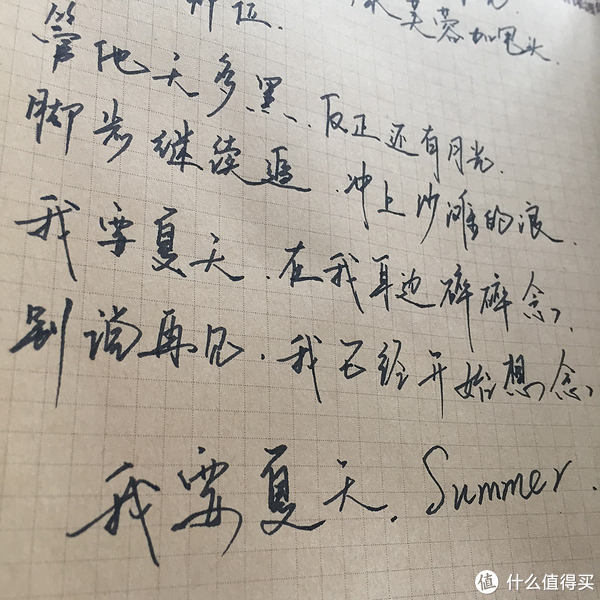 芙蓉如面头.
管他天多黑.反正还有月光.
脚步继续追.冲上沙滩的浪.
我要夏天.在我耳边碎碎念,
别说再见.我已经开始想念,
我要夏天.Summer.
值 什么值得买